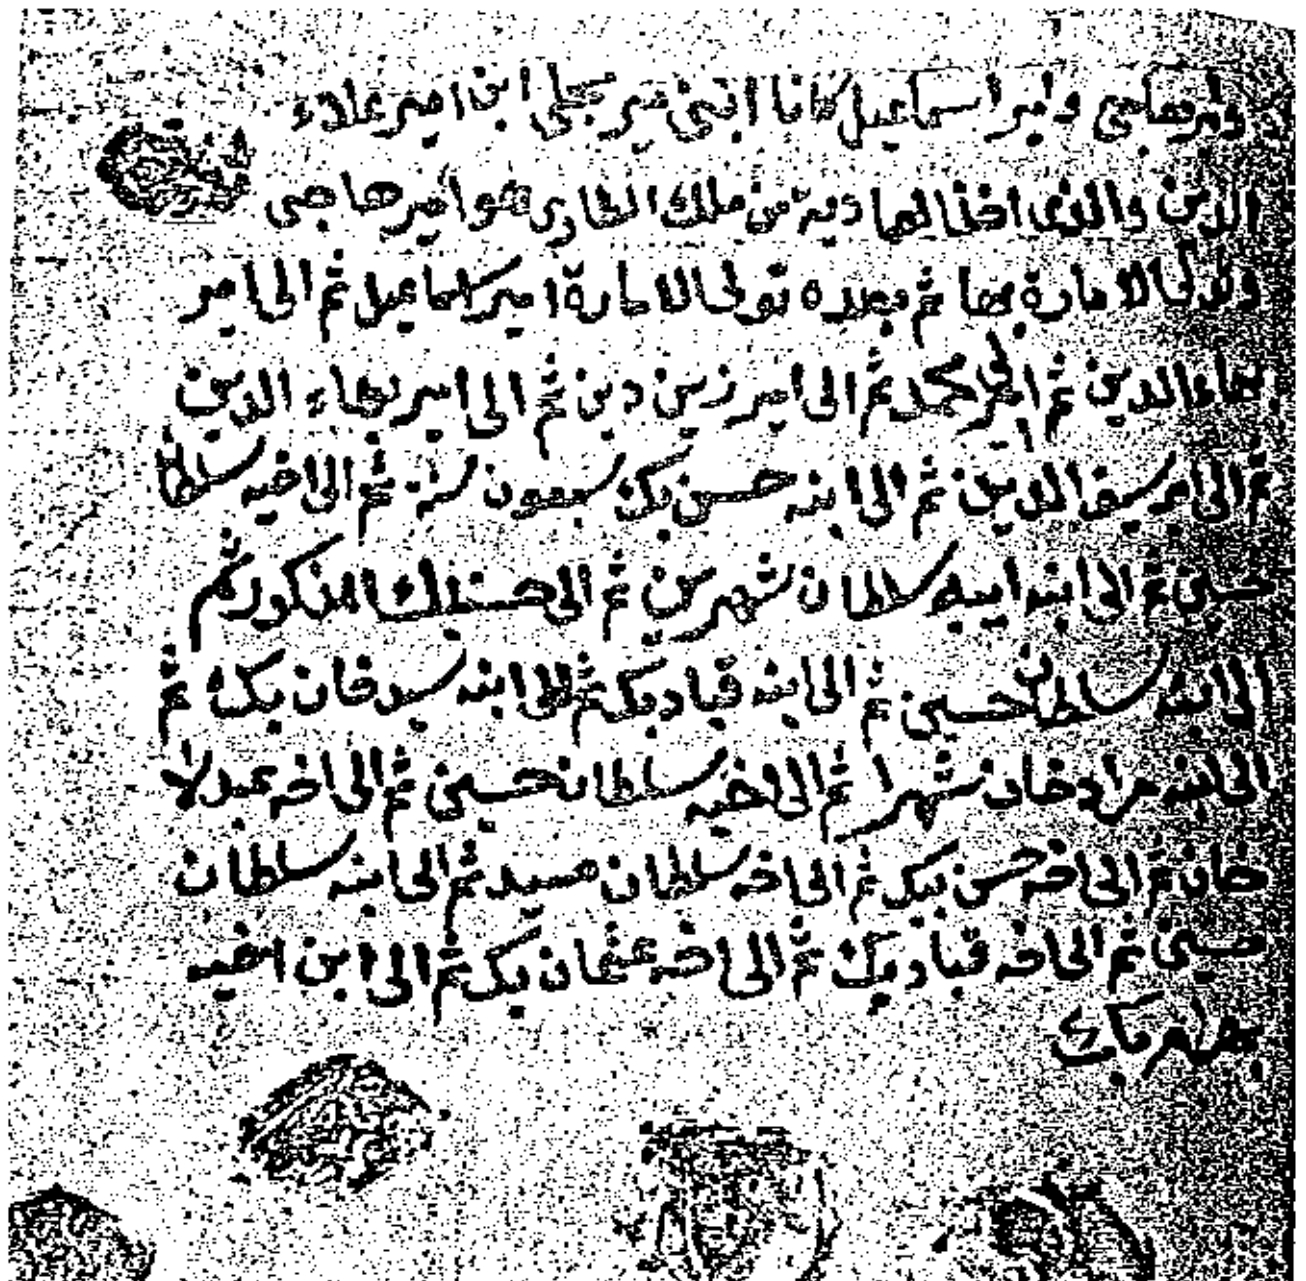 وامير حاجي وامير اسماعيل كانا ابني مير مجلي ابن امير علاء
الدين والذي اخذ العمادية من ملك الظاهر هو امير حاجي
وتولى الامارة بها ثم بعده تولى الامارة امير اسماعيل ثم الى امير
بهاء الدين ثم الى امير محمد ثم الى امير زين دين ثم الى امير بهاء الدين
ثم الى امير سيف الدين ثم الى ابنه حسن بك سبعون سنه ثم الى اخيه سلطان
حسين ثم الى ابنه سلطان ثم الى بك المذكور ثم
الى ابنه سلطان حسين ثم الى ابنه قباد بك ثم الى ابنه سيد خان بك ثم
الى ابنه مراد خان ثم الى اخيه سلطان حسين ثم الى اخه عبدلا
خان ثم الى اخه حسن بيك ثم الى اخه سلطان سيد ثم الى ابنه سلطان
حسين ثم الى اخه قباد بيك ثم الى اخه عثمان بيك ثم الى ابن اخيه